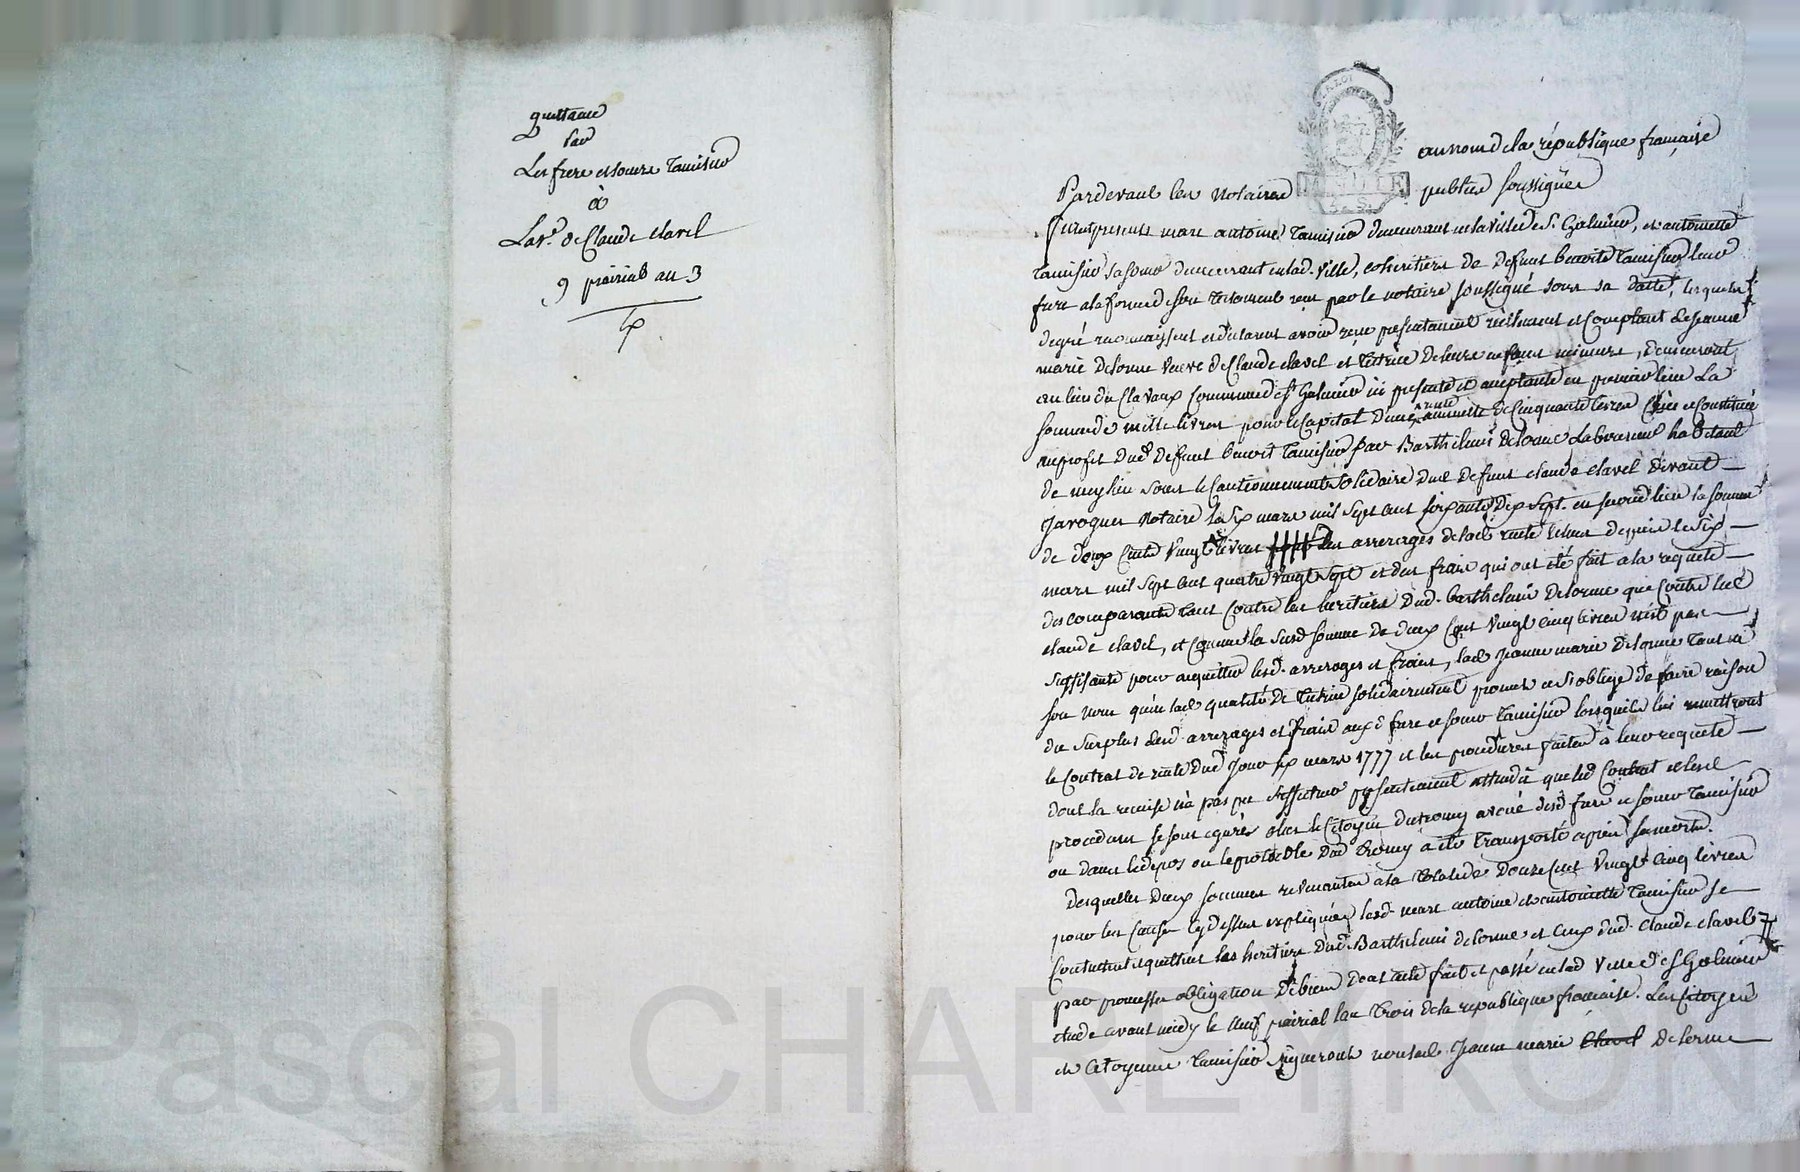 quittance
par
Les frere et soeure Tamisier
à
La ve. de Claude clavel
9 prairial an 3
LA LOI
au nom de la république française
Pardevant les Notaires publics soussignés
furent presents marc antoine Tamisier demeurant en la ville de St. Galmier, et antoinette
Tamisier sa soeur demeurant en lad. ville, coheritiers de defunt benoite Tamisier leur
frere a la forme de son testament reçu par le notaire soussigné sous sa datte, lesquels
de gré reconnaissent et déclarent avoir reçu présentement réellement et comptant de jeanne
marie delorme veuve de Claude clavel et tutrice de leurs enfans mineurs, demeurant
au lieu du Clavaux commune de St Galmier ici presente et acceptante en premier lieu La
somme de mille livres pour le capital d'une rente annuelle de cinquante livres créée et constituée
au profit dud defunt benoit Tamisier par Barthelemi delorme Laboureur habitant
de meylieu sous le cautionnement solidaire dud defunt claude clavel devant
Jarogues Notaire le six mars mil sept cent soixante dix sept. en second lieu la somme
de deux cents vingt livres les arrerages de lad rente echus depuis le six
mars mil sept cent quatre vingt sept et des frais qui ont été fait a la requete
des comparants tant contre les heritiers dud. barthelemi delorme que contre led
claude clavel, et comme la susd somme de deux cent vingt cinq livres n'est pas
suffisante pour acquitter lesd. arrerages et frais, lad jeanne marie delorme tant en
son nom qu'en lad qualité de tutrice solidairement promet et s'oblige de faire raison
du surplus desd. arrerages et frais auxd frere et soeur Tamisier lorsqu'ils lui remettront
le contrat de rente dud jour six mars 1777 et les procedures faites à leur requete
dont la remise n'a pas pu s'effectuer presentement attendu que led contrat et lesd
procedures se sont egarés chez le citoyen dutromy avoué desd frere et soeur Tamisier
ou dans le depos ou le protocole dud Tromy a été transporté apres sa mort.
desquelles deux sommes revenantes a la totale de douze cent vingt cinq livres
pour les causes cy dessus expliquées lesd. marc antoine et antoinette Tamisier se
contentent et quittent les heritiers dud. Barthelemi delorme et ceux dud. Claude clavel
par promesses obligation de biens dont acte fait et passé en lad Ville de St Galmier
etude avant midy le neuf prairial l'an trois de la republique française. Les citoyens
et Citoyenne Tamisier signeront non lad. jeanne marie clavel delorme
Pascal CHAREYRON